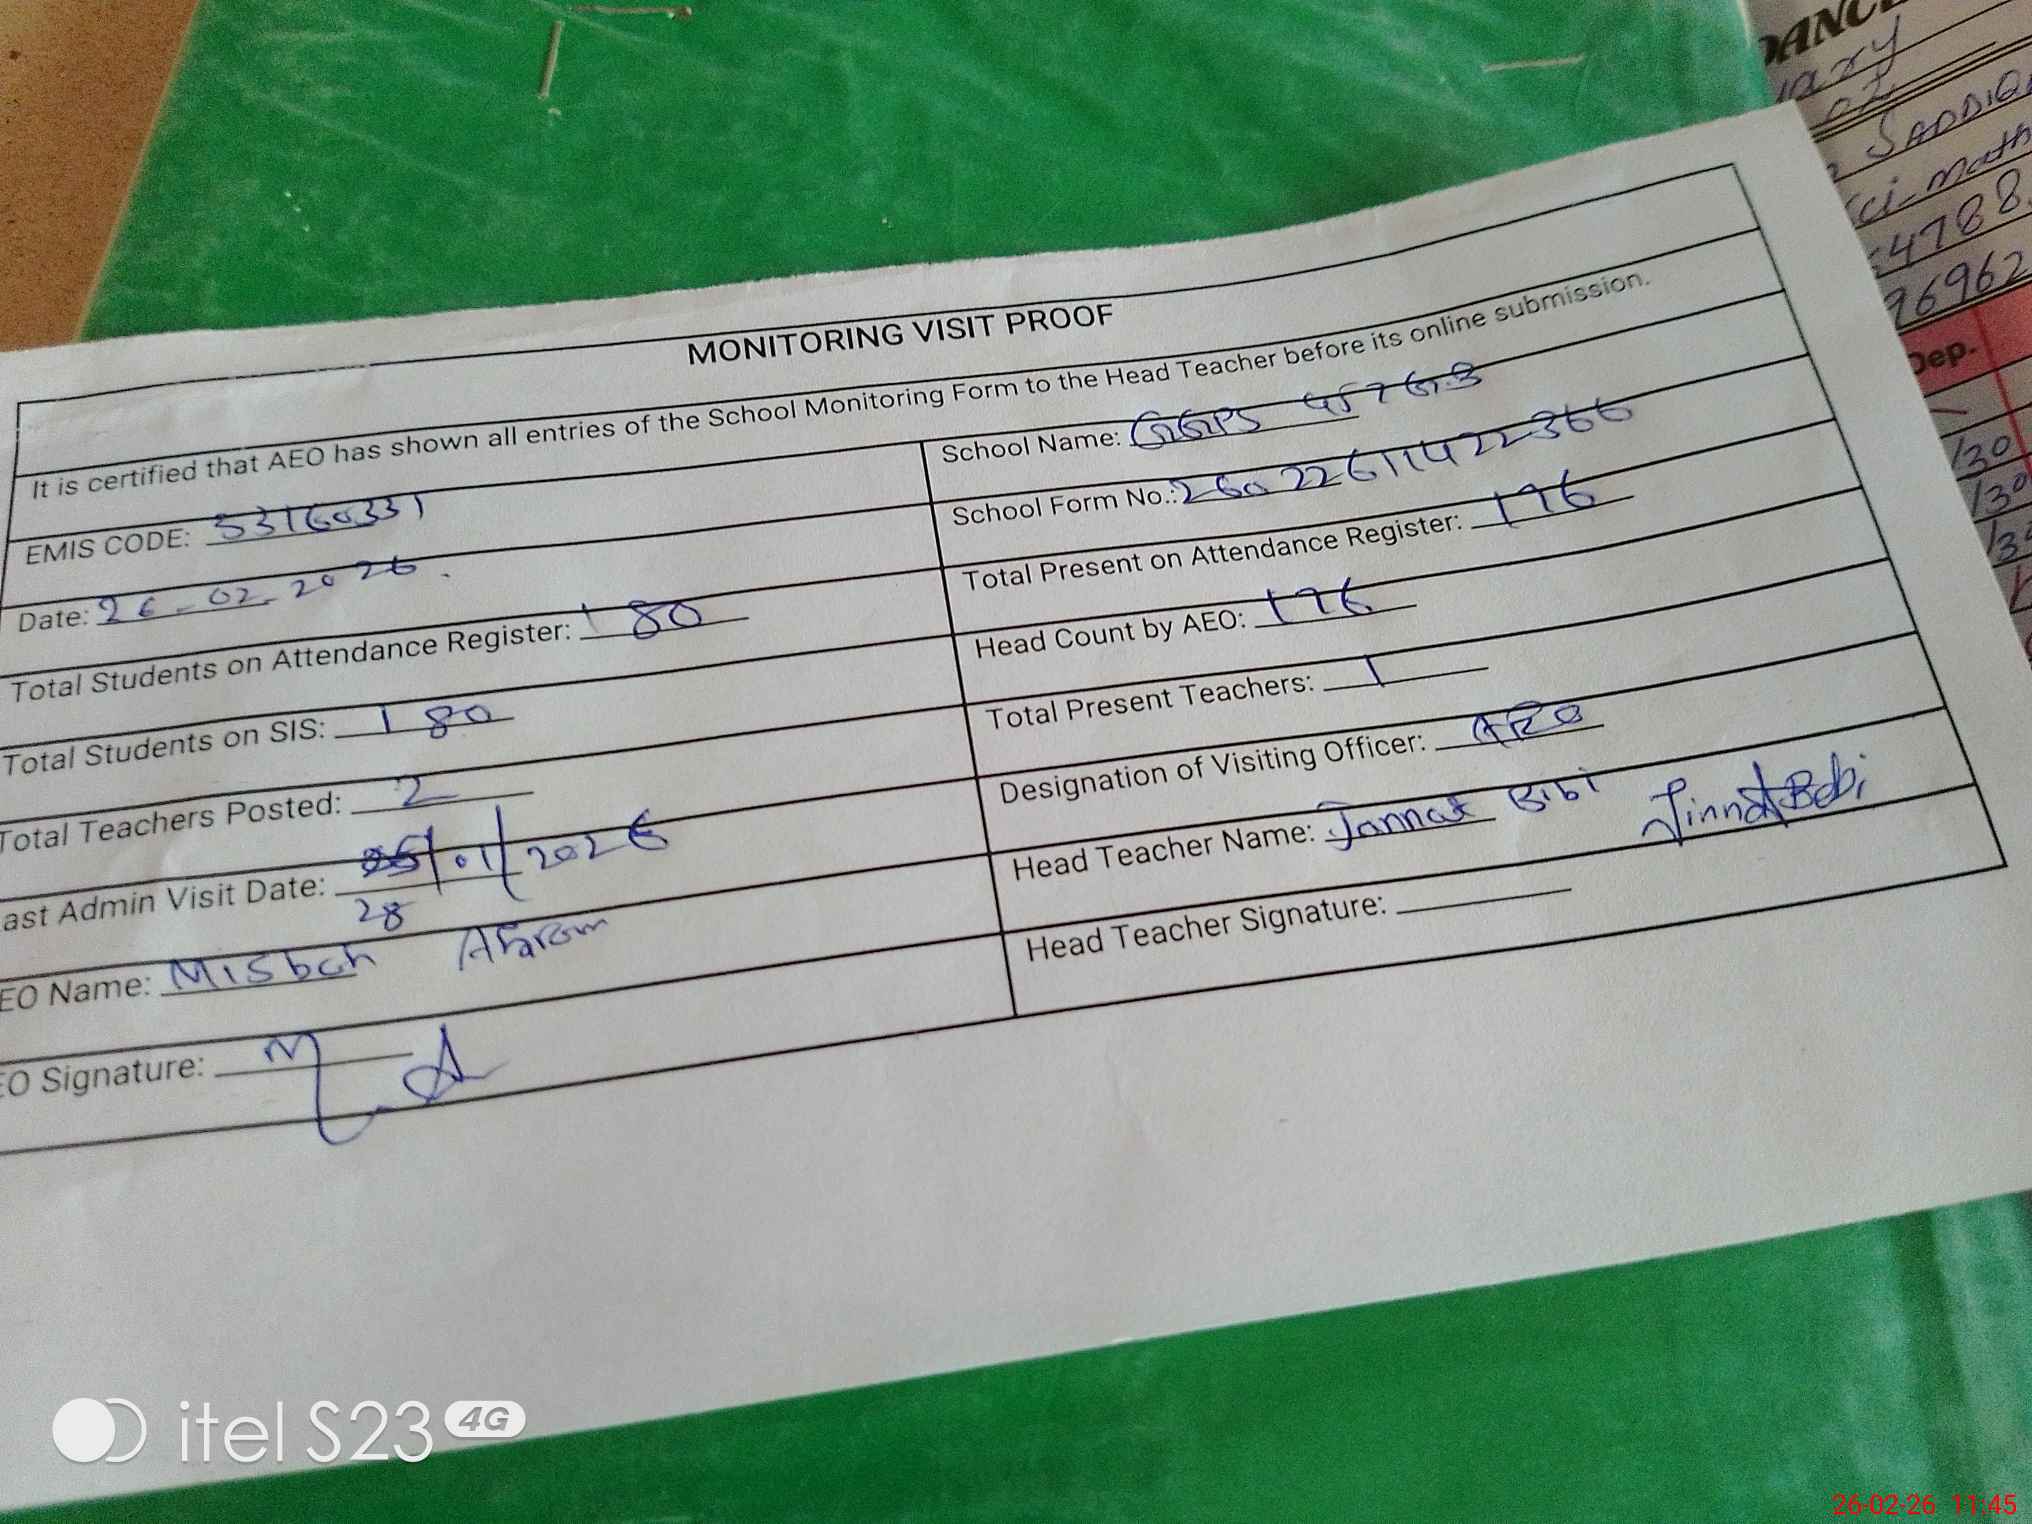 MONITORING VISIT PROOF
It is certified that AEO has shown all entries of the School Monitoring Form to the Head Teacher before its online submission.
EMIS CODE: 53160331
School Name: GGPS 457 G.B
Date: 26-02-2026.
School Form No.: 26022611422366
Total Students on Attendance Register: 180
Total Present on Attendance Register: 176
Total Students on SIS: 180
Head Count by AEO: 176
Total Teachers Posted: 2
Total Present Teachers: 1
ast Admin Visit Date: /01/2026
28
Designation of Visiting Officer: AEO
EO Name: Misbah Akram
Head Teacher Name: Jannat Bibi
Jinnat Bibi
EO Signature:
Head Teacher Signature:
SADDIQ
Math
4788
96962
Dep.
/30
itel S23 4G
26-02-26 11:45